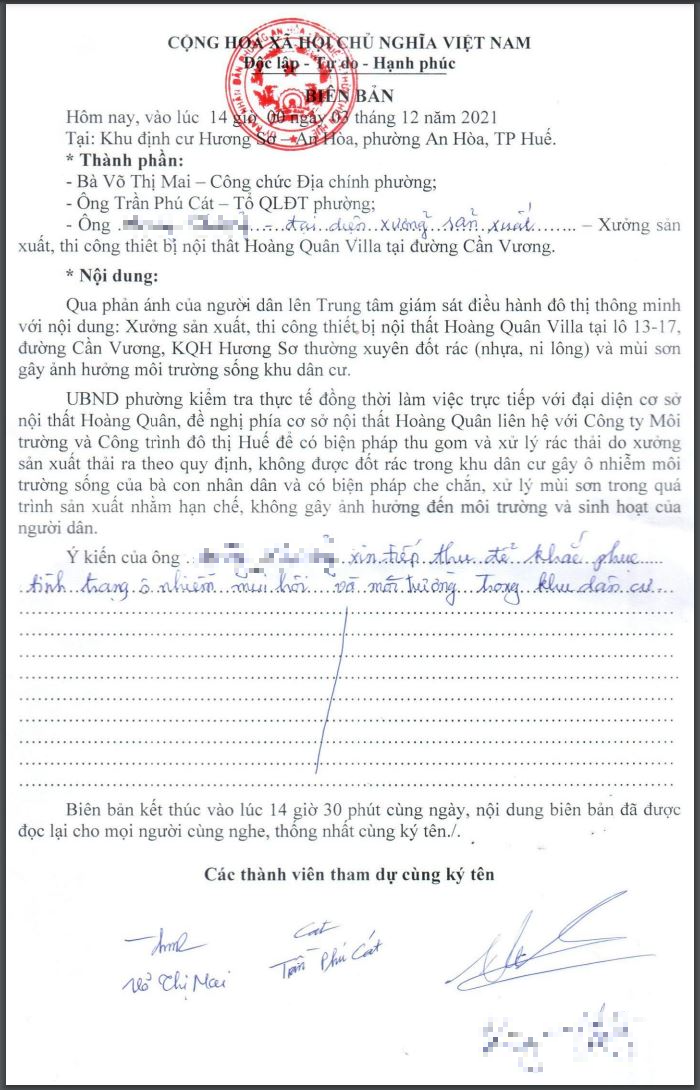 CỘNG HÒA XÃ HỘI CHỦ NGHĨA VIỆT NAM
Độc lập - Tự do - Hạnh phúc
BIÊN BẢN
Hôm nay, vào lúc 14 giờ 00 ngày 03 tháng 12 năm 2021
Tại: Khu định cư Hương Sơ – An Hòa, phường An Hòa, TP Huế.
* Thành phần:
- Bà Võ Thị Mai – Công chức Địa chính phường;
- Ông Trần Phú Cát – Tổ QLĐT phường;
- Ông - đại diện xưởng sản xuất – Xưởng sản
xuất, thi công thiêt bị nội thất Hoàng Quân Villa tại đường Cần Vương.
* Nội dung:
Qua phản ánh của người dân lên Trung tâm giám sát điều hành đô thị thông minh
với nội dung: Xưởng sản xuất, thi công thiết bị nội thất Hoàng Quân Villa tại lô 13-17,
đường Cần Vương, KQH Hương Sơ thường xuyên đốt rác (nhựa, ni lông) và mùi sơn
gây ảnh hưởng môi trường sống khu dân cư.
UBND phường kiểm tra thực tế đồng thời làm việc trực tiếp với đại diện cơ sở
nội thất Hoàng Quân, đề nghị phía cơ sở nội thất Hoàng Quân liên hệ với Công ty Môi
trường và Công trình đô thị Huế để có biện pháp thu gom và xử lý rác thải do xưởng
sản xuất thải ra theo quy định, không được đốt rác trong khu dân cư gây ô nhiễm môi
trường sống của bà con nhân dân và có biện pháp che chắn, xử lý mùi sơn trong quá
trình sản xuất nhằm hạn chế, không gây ảnh hưởng đến môi trường và sinh hoạt của
người dân.
Ý kiến của ông xin tiếp thu để khắc phục
tình trạng ô nhiễm mùi hôi và môi trường trong khu dân cư
Biên bản kết thúc vào lúc 14 giờ 30 phút cùng ngày, nội dung biên bản đã được
đọc lại cho mọi người cùng nghe, thống nhất cùng ký tên./.
Các thành viên tham dự cùng ký tên
Cat
Võ Thị Mai
Trần Phú Cát